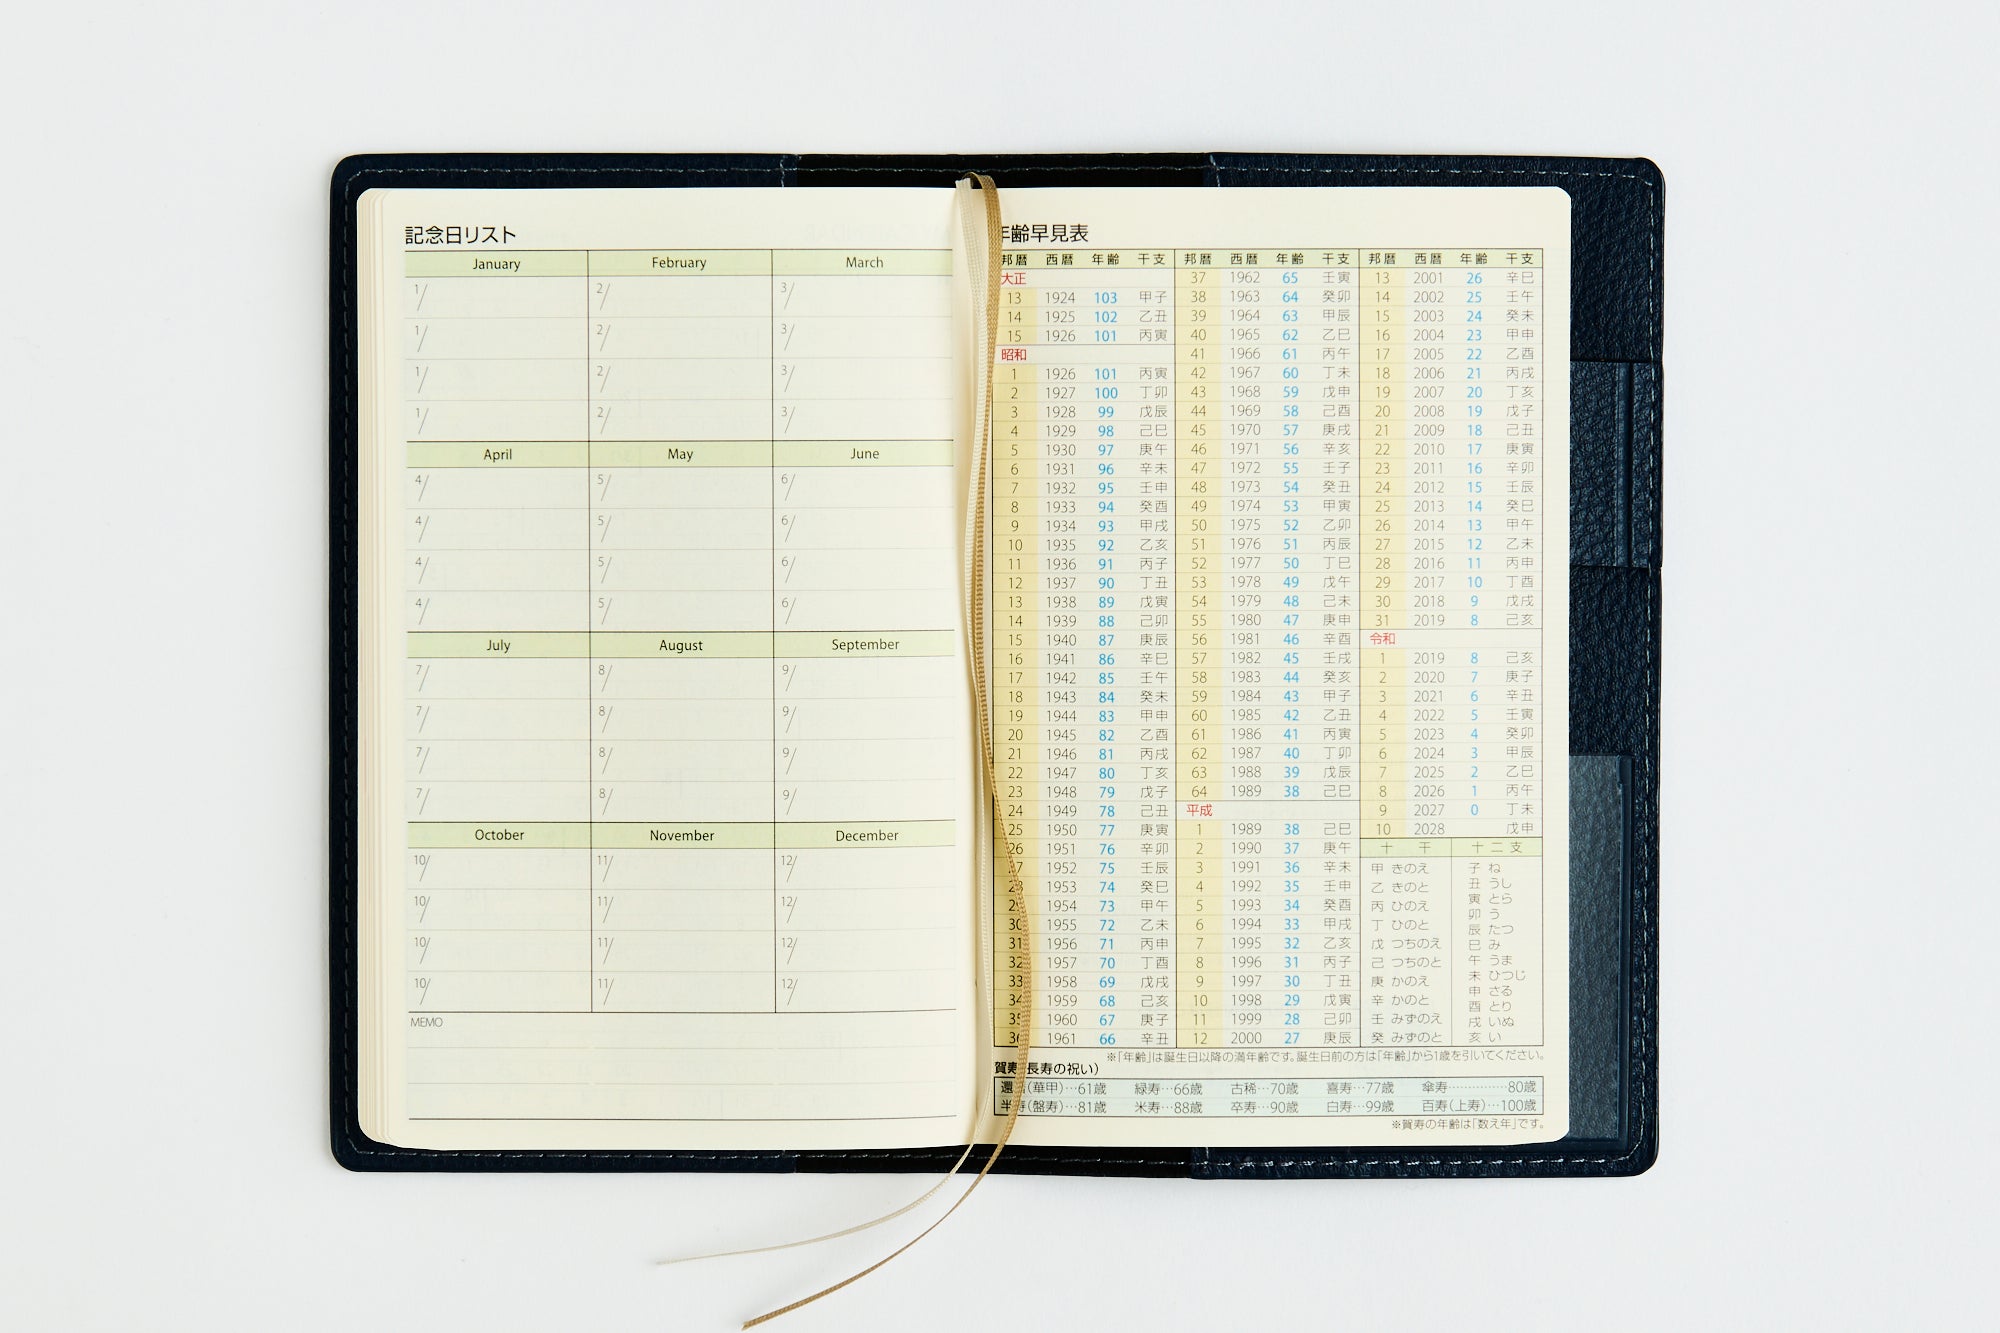 記念日リスト
January February March
1/ 2/ 3/
1/ 2/ 3/
1/ 2/ 3/
1/ 2/ 3/
April May June
4/ 5/ 6/
4/ 5/ 6/
4/ 5/ 6/
4/ 5/ 6/
July August September
7/ 8/ 9/
7/ 8/ 9/
7/ 8/ 9/
7/ 8/ 9/
October November December
10/ 11/ 12/
10/ 11/ 12/
10/ 11/ 12/
10/ 11/ 12/
MEMO
年齢早見表
邦暦 西暦 年齢 干支
大正
13 1924 103 甲子
14 1925 102 乙丑
15 1926 101 丙寅
昭和
1 1926 101 丙寅
2 1927 100 丁卯
3 1928 99 戊辰
4 1929 98 己巳
5 1930 97 庚午
6 1931 96 辛未
7 1932 95 壬申
8 1933 94 癸酉
9 1934 93 甲戌
10 1935 92 乙亥
11 1936 91 丙子
12 1937 90 丁丑
13 1938 89 戊寅
14 1939 88 己卯
15 1940 87 庚辰
16 1941 86 辛巳
17 1942 85 壬午
18 1943 84 癸未
19 1944 83 甲申
20 1945 82 乙酉
21 1946 81 丙戌
22 1947 80 丁亥
23 1948 79 戊子
24 1949 78 己丑
25 1950 77 庚寅
26 1951 76 辛卯
27 1952 75 壬辰
28 1953 74 癸巳
29 1954 73 甲午
30 1955 72 乙未
31 1956 71 丙申
32 1957 70 丁酉
33 1958 69 戊戌
34 1959 68 己亥
35 1960 67 庚子
36 1961 66 辛丑
邦暦 西暦 年齢 干支
37 1962 65 壬寅
38 1963 64 癸卯
39 1964 63 甲辰
40 1965 62 乙巳
41 1966 61 丙午
42 1967 60 丁未
43 1968 59 戊申
44 1969 58 己酉
45 1970 57 庚戌
46 1971 56 辛亥
47 1972 55 壬子
48 1973 54 癸丑
49 1974 53 甲寅
50 1975 52 乙卯
51 1976 51 丙辰
52 1977 50 丁巳
53 1978 49 戊午
54 1979 48 己未
55 1980 47 庚申
56 1981 46 辛酉
57 1982 45 壬戌
58 1983 44 癸亥
59 1984 43 甲子
60 1985 42 乙丑
61 1986 41 丙寅
62 1987 40 丁卯
63 1988 39 戊辰
64 1989 38 己巳
平成
1 1989 38 己巳
2 1990 37 庚午
3 1991 36 辛未
4 1992 35 壬申
5 1993 34 癸酉
6 1994 33 甲戌
7 1995 32 乙亥
8 1996 31 丙子
9 1997 30 丁丑
10 1998 29 戊寅
11 1999 28 己卯
12 2000 27 庚辰
邦暦 西暦 年齢 干支
13 2001 26 辛巳
14 2002 25 壬午
15 2003 24 癸未
16 2004 23 甲申
17 2005 22 乙酉
18 2006 21 丙戌
19 2007 20 丁亥
20 2008 19 戊子
21 2009 18 己丑
22 2010 17 庚寅
23 2011 16 辛卯
24 2012 15 壬辰
25 2013 14 癸巳
26 2014 13 甲午
27 2015 12 乙未
28 2016 11 丙申
29 2017 10 丁酉
30 2018 9 戊戌
31 2019 8 己亥
令和
1 2019 8 己亥
2 2020 7 庚子
3 2021 6 辛丑
4 2022 5 壬寅
5 2023 4 癸卯
6 2024 3 甲辰
7 2025 2 乙巳
8 2026 1 丙午
9 2027 0 丁未
10 2028 戊申
十干
甲 きのえ
乙 きのと
丙 ひのえ
丁 ひのと
戊 つちのえ
己 つちのと
庚 かのえ
辛 かのと
壬 みずのえ
癸 みずのと
十二支
子 ね
丑 うし
寅 とら
卯 う
辰 たつ
巳 み
午 うま
未 ひつじ
申 さる
酉 とり
戌 いぬ
亥 い
※「年齢」は誕生日以降の満年齢です。誕生日前の方は「年齢」から1歳を引いてください。
賀寿(長寿の祝い)
還暦(華甲)…61歳 緑寿…66歳 古稀…70歳 喜寿…77歳 傘寿…………80歳
半寿(盤寿)…81歳 米寿…88歳 卒寿…90歳 白寿…99歳 百寿(上寿)…100歳
※賀寿の年齢は「数え年」です。